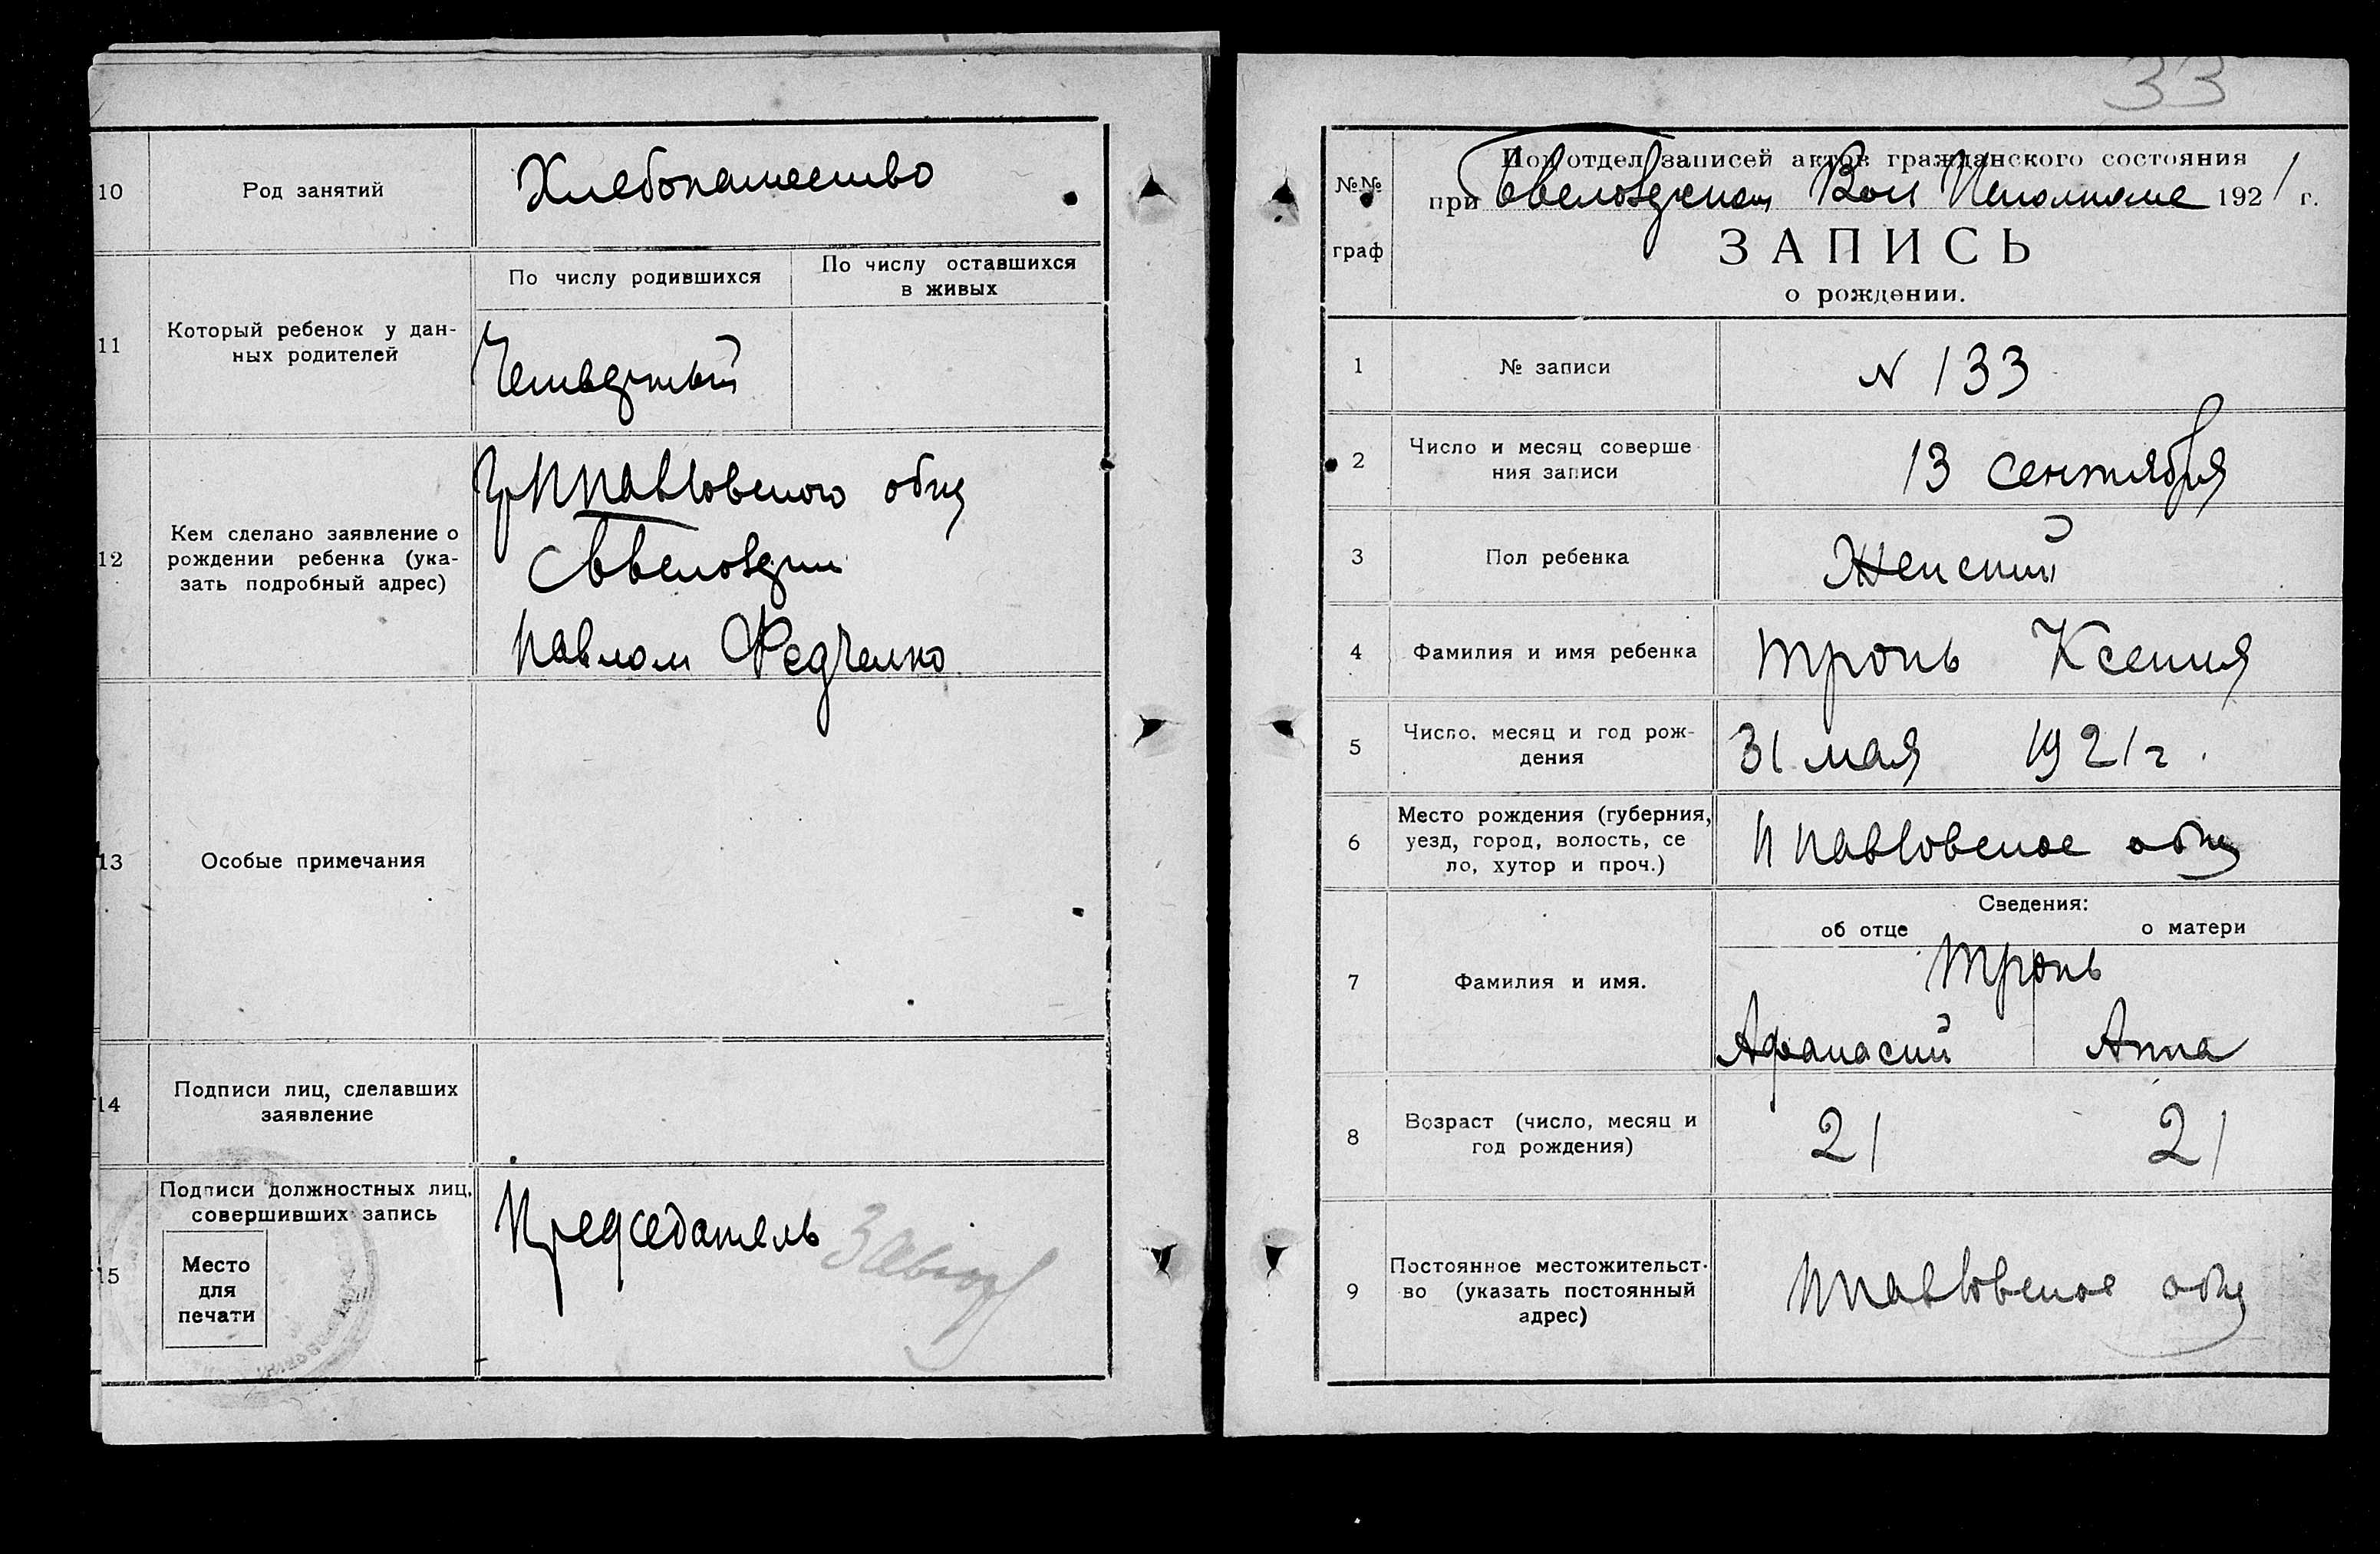 10
Род занятий
Хлебопашество
11
Который ребенок у дан-
ных родителей
По числу родившихся
По числу оставшихся
в живых
Четвертый
12
Кем сделано заявление о
рождении ребенка (ука-
зать подробный адрес)
обще
Павлом Федченко
13
Особые примечания
14
Подписи лиц, сделавших
заявление
15
Подписи должностных лиц,
совершивших запись
Место
для
печати
Председатель
33
№№
граф
Подотдел записей актов гражданского состояния
при Вол 1921 г.
ЗАПИСЬ
о рождении.
1
№ записи
N 133
2
Число и месяц соверше
ния записи
13 сентября
3
Пол ребенка
Женский
4
Фамилия и имя ребенка
Тронь Ксения
5
Число, месяц и год рож-
дения
31 мая 1921 г.
6
Место рождения (губерния,
уезд, город, волость, се
ло, хутор и проч.)
обще
7
Фамилия и имя.
Сведения:
об отце о матери
Тронь
Афанасий Анна
8
Возраст (число, месяц и
год рождения)
21 21
9
Постоянное местожительст-
во (указать постоянный
адрес)
обще